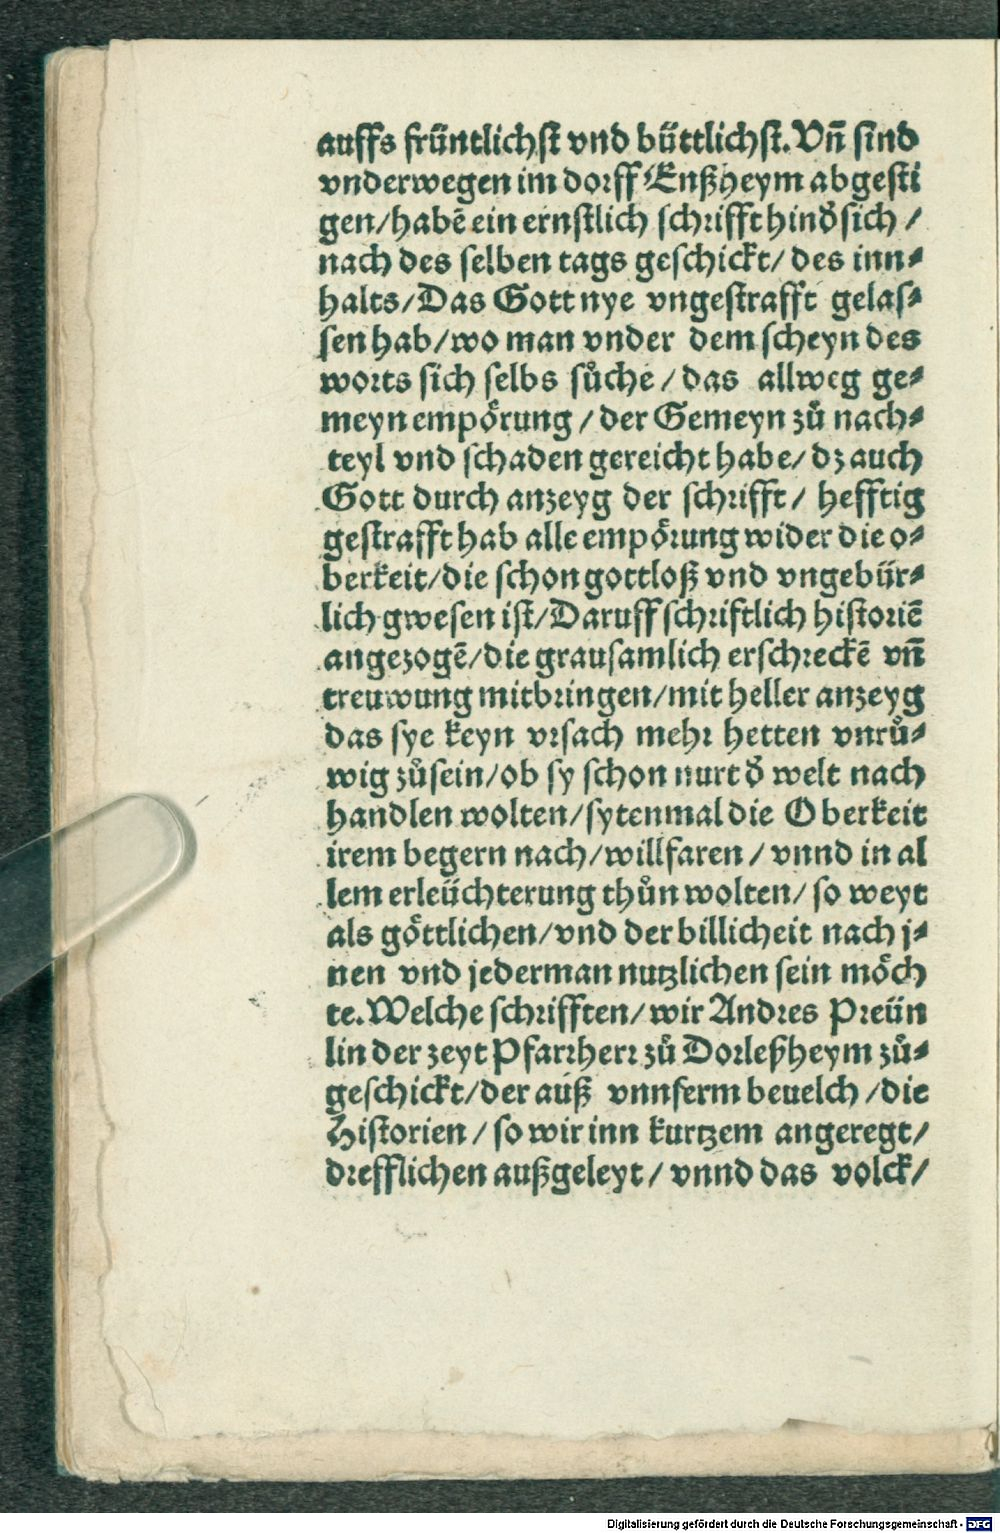 auffs früntlichst vnd büttlichst. Vñ sind
vnderwegen im dorff Enßheym abgesti
gen/habē ein ernstlich schrifft hinđ sich /
nach des selben tags geschickt/ des inn⸗
halts/Das Gott nye vngestrafft gelas⸗
sen hab/wo man vnder dem scheyn des
worts sich selbs sůche / das allweg ge⸗
meyn empoͤrung / der Gemeyn zů nach⸗
teyl vnd schaden gereicht habe/ dz auch
Gott durch anzeyg der schrifft/ hefftig
gestrafft hab alle empoͤrung wider die o⸗
berkeit/die schon gottloß vnd vngebür⸗
lich gwesen ist/Daruff schriftlich historiē
angezogē/die grausamlich erschreckē vñ
treuwung mitbringen/mit heller anzeyg
das sye keyn vrsach mehr hetten vnrů⸗
wig zůsein/ob sy schon nurt đ welt nach
handlen wolten/sytenmal die Oberkeit
irem begern nach/willfaren / vnnd in al
lem erleüchterung thůn wolten/ so weyt
als goͤttlichen/vnd der billicheit nach j⸗
nen vnd jederman nutzlichen sein moͤch
te. Welche schrifften/wir Andres Preün
lin der zeyt Pfarrherr zů Dorleßheym zů⸗
geschickt/der auß vnnserm beuelch /die
Historien / so wir inn kurtzem angeregt/
drefflichen außgeleyt/ vnnd das volck/
Digitalisierung gefördert durch die Deutsche Forschungsgemeinschaft - DFG